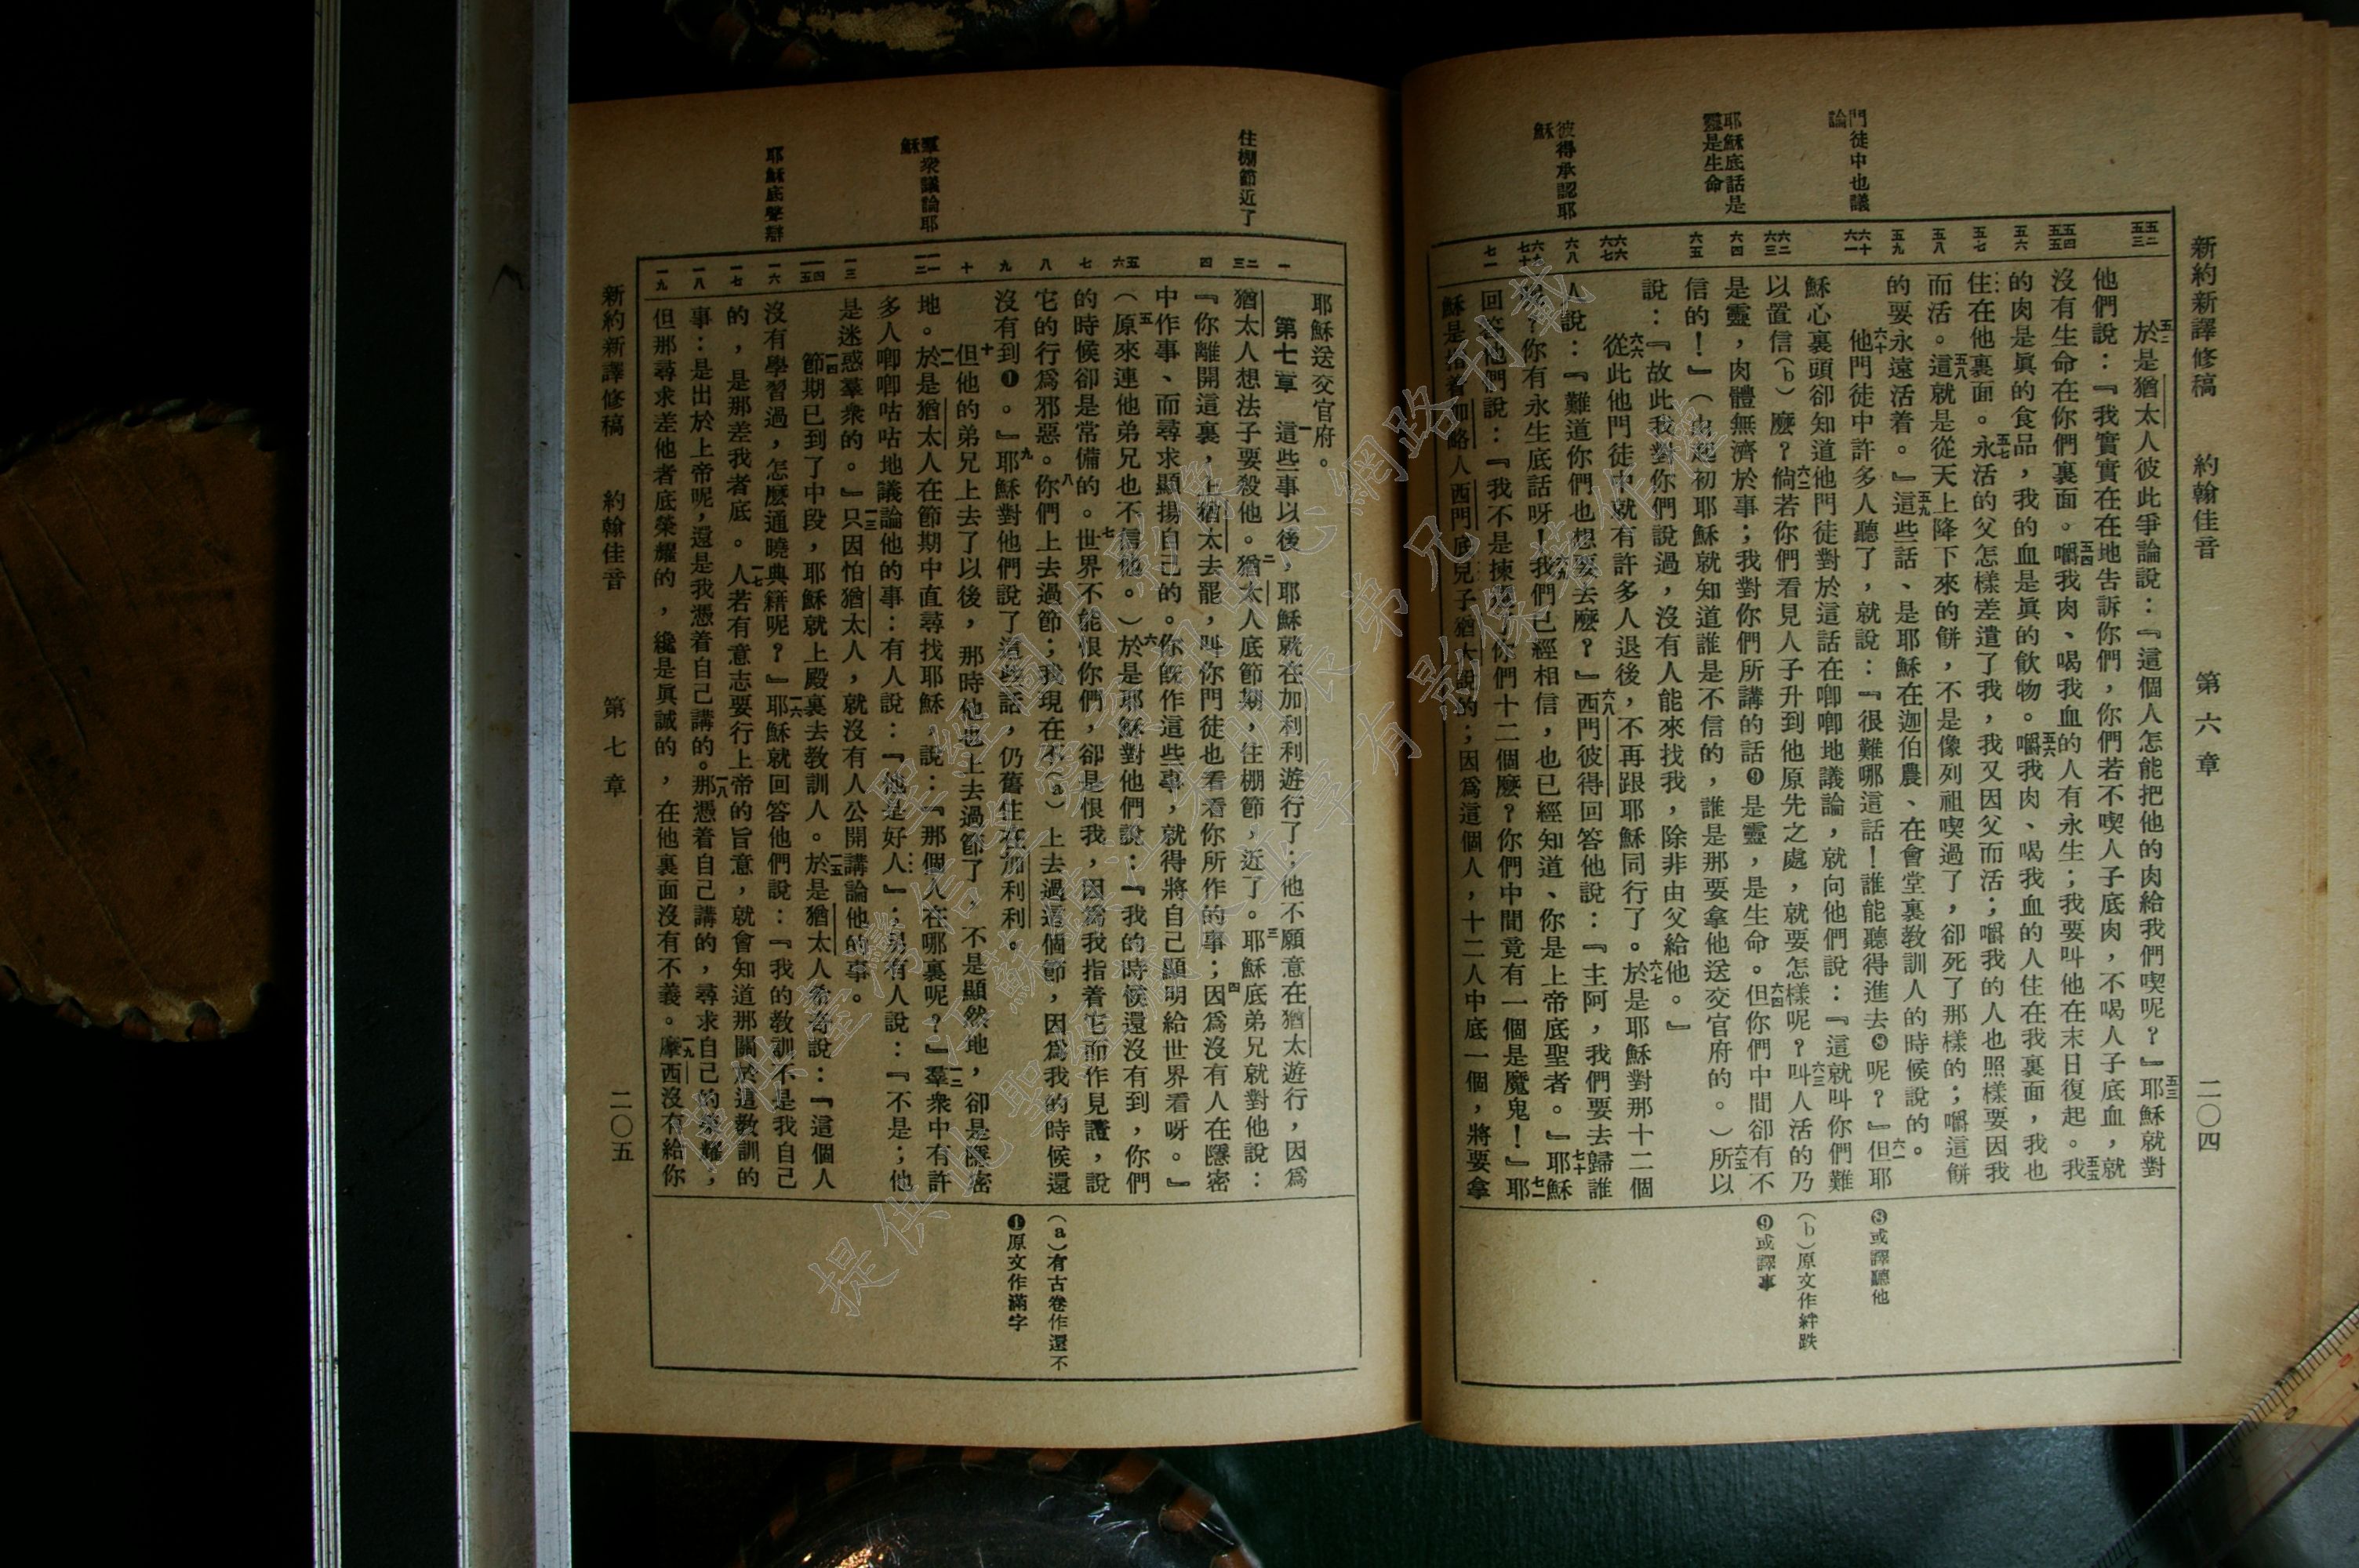 新約新譯修稿　約翰佳音　第六章　二〇四
門徒中也議論
耶穌底話是靈是生命
彼得承認耶穌
五二 五三 五四 五五 五六 五七 五八 五九 六十 六一 六二 六三 六四 六五 六六 六七 六八 六九 七十 七一
五二於是猶太人彼此爭論說：『這個人怎能把他的肉給我們喫呢？』五三耶穌就對
他們說：『我實實在在地告訴你們，你們若不喫人子底肉，不喝人子底血，就
沒有生命在你們裏面。五四嚼我肉、喝我血的人有永生；我要叫他在末日復起。五五我
的肉是眞的食品，我的血是眞的飲物。五六嚼我肉、喝我血的人住在我裏面，我也
住在他裏面。五七永活的父怎樣差遣了我，我又因父而活；嚼我的人也照樣要因我
而活。五八這就是從天上降下來的餅，不是像列祖喫過了，卻死了那樣的；嚼這餅
的要永遠活着。』五九這些話、是耶穌在迦伯農、在會堂裏教訓人的時候說的。
六十他門徒中許多人聽了，就說：『很難哪這話！誰能聽得進去❽呢？』六一但耶
穌心裏頭卻知道他門徒對於這話在唧唧地議論，就向他們說：『這就叫你們難
以置信（b）麼？六二倘若你們看見人子升到他原先之處，就要怎樣呢？六三叫人活的乃
是靈，肉體無濟於事；我對你們所講的話❾是靈，是生命。六四但你們中間卻有不
信的！』（由起初耶穌就知道誰是不信的，誰是那要拿他送交官府的。）六五所以
說：『故此我對你們說過，沒有人能來找我，除非由父給他。』
六六從此他門徒中就有許多人退後，不再跟耶穌同行了。六七於是耶穌對那十二個
人說：『難道你們也想要去麼？』六八西門彼得回答他說：『主阿，我們要去歸誰
呢？你有永生底話呀！六九我們已經相信，也已經知道、你是上帝底聖者。』七十耶穌
回答他們說：『我不是揀選了你們十二個麼？你們中間竟有一個是魔鬼！』七一耶
穌是指着加略人西門底兒子猶大說的；因爲這個人，十二人中底一個，將要拿
❽或譯聽他
（b）原文作絆跌
❾或譯事
住棚節近了
羣衆議論耶穌
耶穌底聲辯
一 二 三 四 五 六 七 八 九 十 一一 一二 一三 一四 一五 一六 一七 一八 一九
耶穌送交官府。
第七章　一這些事以後，耶穌就在加利利遊行了；他不願意在猶太遊行，因爲
猶太人想法子要殺他。二猶太人底節期，住棚節，近了。三耶穌底弟兄就對他說：
『你離開這裏，上猶太去罷，叫你門徒也看看你所作的事；四因爲沒有人在隱密
中作事、而尋求顯揚自己的。你旣作這些事，就得將自己顯明給世界看呀。』
（五原來連他弟兄也不信他。）六於是耶穌對他們說：『我的時候還沒有到，你們
的時候卻是常備的。七世界不能恨你們，卻是恨我，因爲我指着它而作見證，說
它的行爲邪惡。八你們上去過節；我現在不（a）上去過這個節，因爲我的時候還
沒有到❶。』九耶穌對他們說了這些話，仍舊住在加利利。
十但他的弟兄上去了以後，那時他也上去過節了，不是顯然地，卻是隱密
地。一一於是猶太人在節期中直尋找耶穌，說：『那個人在哪裏呢？』一二羣衆中有許
多人唧唧咕咕地議論他的事：有人說：『他是好人』；另有人說：『不是；他
是迷惑羣衆的。』一三只因怕猶太人，就沒有人公開講論他的事。
一四節期已到了中段，耶穌就上殿裏去教訓人。一五於是猶太人希奇說：『這個人
沒有學習過，怎麼通曉典籍呢？』一六耶穌就回答他們說：『我的教訓不是我自己
的，是那差我者底。一七人若有意志要行上帝的旨意，就會知道那關於這教訓的
事：是出於上帝呢，還是我憑着自己講的。一八那憑着自己講的，尋求自己的榮耀，
但那尋求差他者底榮耀的，纔是眞誠的，在他裏面沒有不義。一九摩西沒有給你
（a）有古卷作還不
❶原文作滿字
新約新譯修稿　約翰佳音　第七章　二〇五